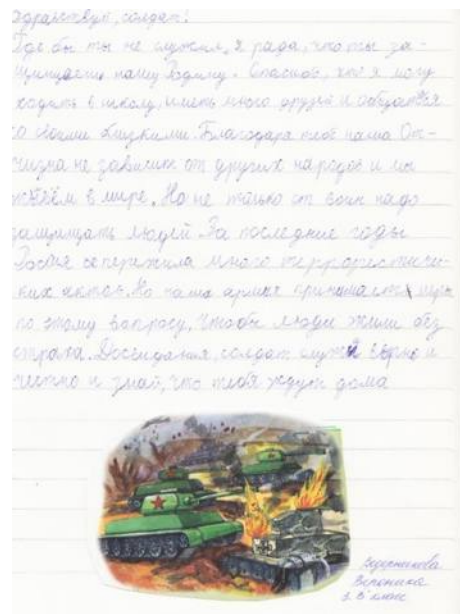 Здравствуй, солдат!
Где бы ты не служил, я рада, что ты за-
щищаешь нашу Родину. Спасибо, что я могу
ходить в школу, иметь много друзей и общаться
со своими близкими. Благодаря тебе наша От-
чизна не зависит от других народов и мы
живём в мире. Но не только от воин надо
защищать людей. За последние годы
Россия пережила много террористиче-
ких актов. Но наша армия принимает меры
по этому вопросу, чтобы люди жили без
страха. Досвидания, солдат служи верно и
честно и знай, что тебя ждут дома
Вероника
3 "В" класс